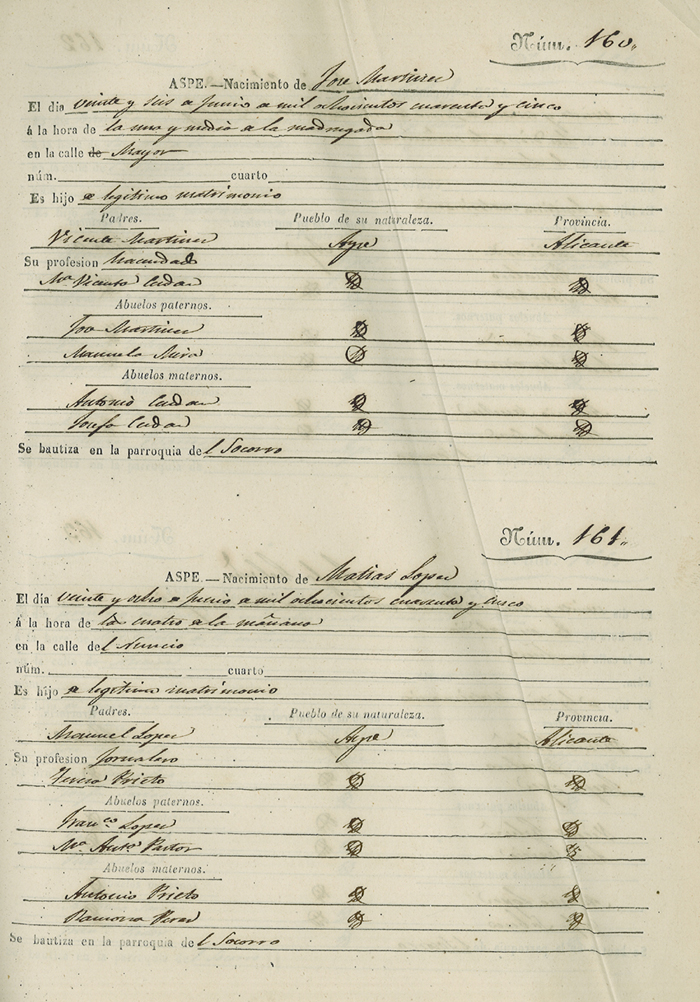 Núm. 160.
ASPE.—Nacimiento de Jose Martinez
El dia veinte y seis de Junio de mil ochocientos cuarenta y cinco
á la hora de la una y media de la madrugada
en la calle de Mayor
núm. cuarto
Es hijo de legitimo matrimonio
Padres. Pueblo de su naturaleza. Provincia.
Vicente Martinez Aspe Alicante
Su profesion Hacendado
Mª Vicenta D D
Abuelos paternos.
Jose Martinez D D
Manuela Mira D D
Abuelos maternos.
Antonio D D
Josefa D D
Se bautiza en la parroquia del Socorro
Núm. 161.
ASPE.—Nacimiento de Matias Lopez
El día veinte y ocho de Junio de mil ochocientos cuarenta y cinco
á la hora de las cuatro de la mañana
en la calle del Nuncio
núm. cuarto
Es hijo de legitimo matrimonio
Padres. Pueblo de su naturaleza. Provincia.
Manuel Lopez Aspe Alicante
Su profesion Jornalero
Teresa Prieto D D
Abuelos paternos.
Franco Lopez D D
Mª Antª Pastor D D
Abuelos maternos.
Antonio Prieto D D
Ramona Perez D D
Se bautiza en la parroquia del Socorro